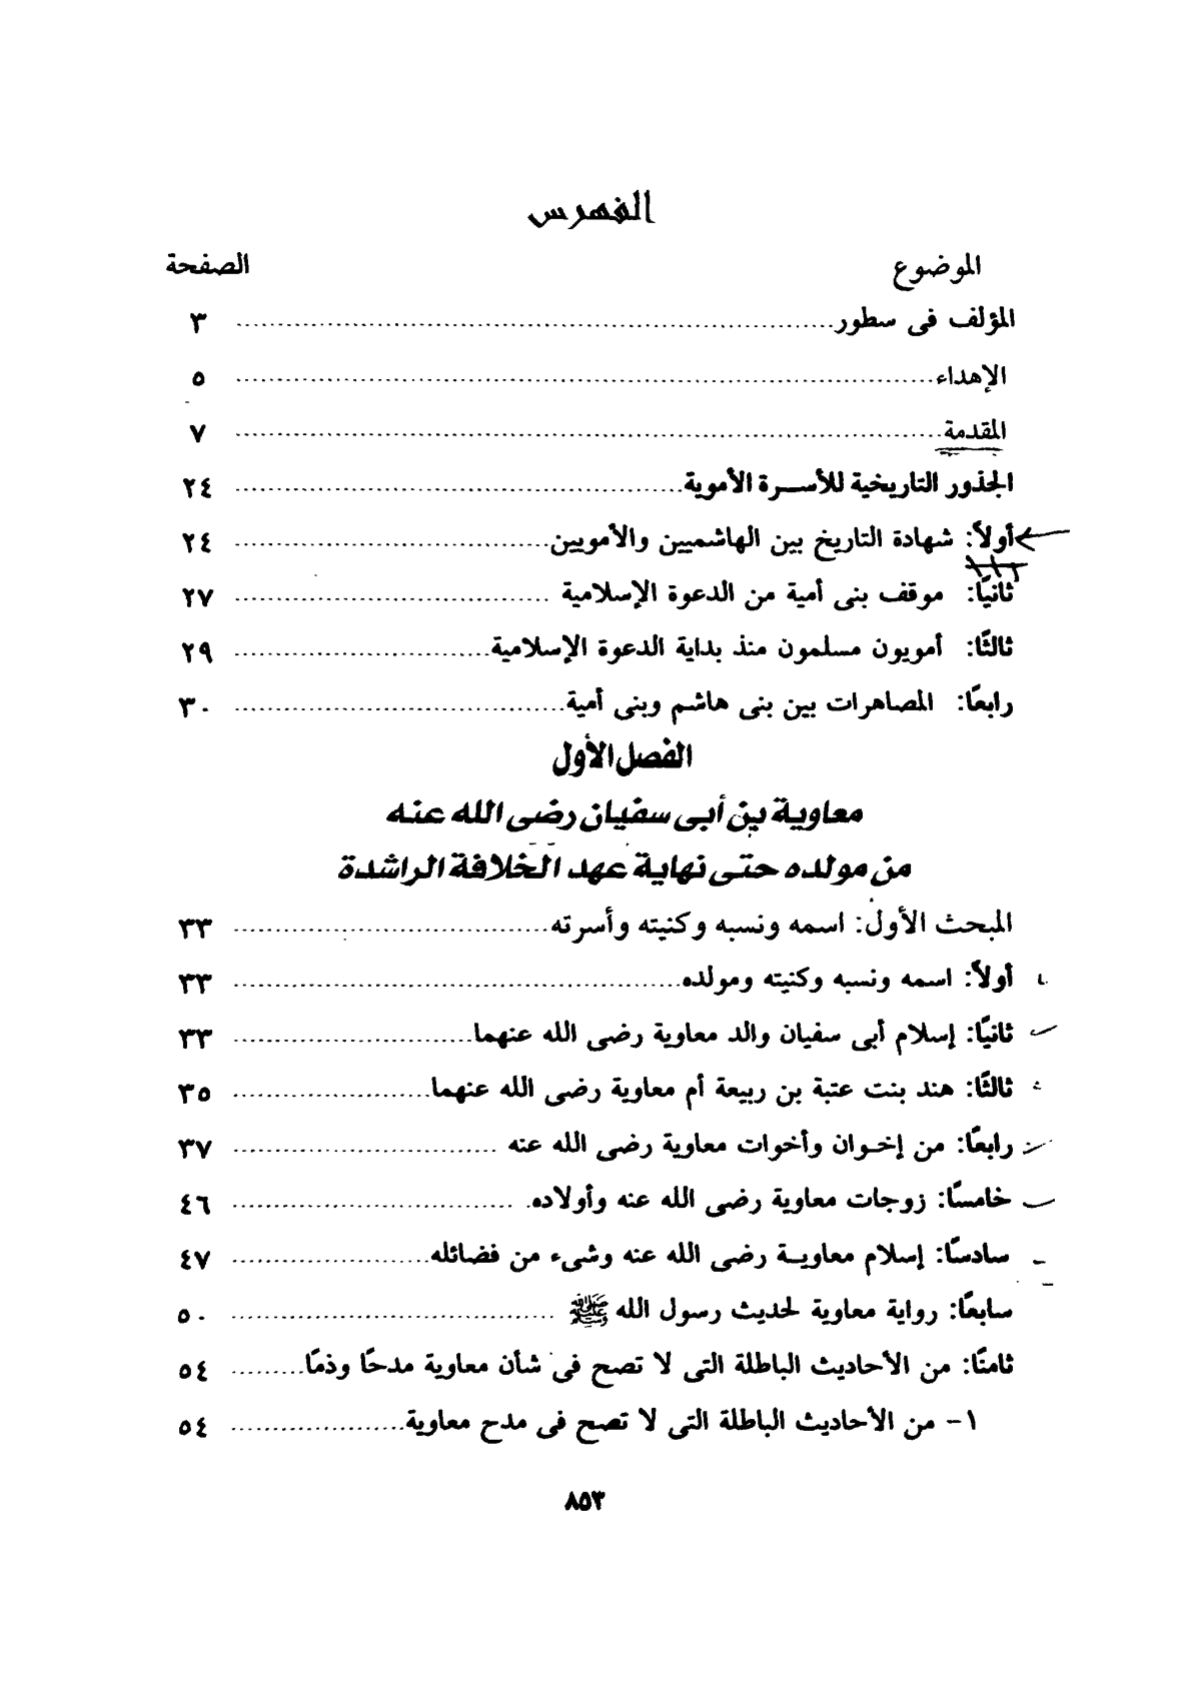 الفهرس
الموضوع الصفحة
المؤلف فى سطور ........ ٣
الإهداء ........ ٥
المقدمة ........ ٧
الجذور التاريخية للأسرة الأموية ........ ٢٤
أولاً: شهادة التاريخ بين الهاشميين والأمويين ........ ٢٤
ثانيًا: موقف بنى أمية من الدعوة الإسلامية ........ ٢٧
ثالثًا: أمويون مسلمون منذ بداية الدعوة الإسلامية ........ ٢٩
رابعًا: المصاهرات بين بنى هاشم وبنى أمية ........ ٣٠
الفصل الأول
معاوية بن أبى سفيان رضى الله عنه
من مولده حتى نهاية عهد الخلافة الراشدة
المبحث الأول: اسمه ونسبه وكنيته وأسرته ........ ٣٣
أولاً: اسمه ونسبه وكنيته ومولده ........ ٣٣
ثانيًا: إسلام أبى سفيان والد معاوية رضى الله عنهما ........ ٣٣
ثالثًا: هند بنت عتبة بن ربيعة أم معاوية رضى الله عنهما ........ ٣٥
رابعًا: من إخوان وأخوات معاوية رضى الله عنه ........ ٣٧
خامسًا: زوجات معاوية رضى الله عنه وأولاده ........ ٤٦
سادسًا: إسلام معاوية رضى الله عنه وشىء من فضائله ........ ٤٧
سابعًا: رواية معاوية لحديث رسول الله ﷺ ........ ٥٠
ثامنًا: من الأحاديث الباطلة التى لا تصح فى شأن معاوية مدحًا وذمًا ........ ٥٤
١- من الأحاديث الباطلة التى لا تصح فى مدح معاوية ........ ٥٤
٨٥٣